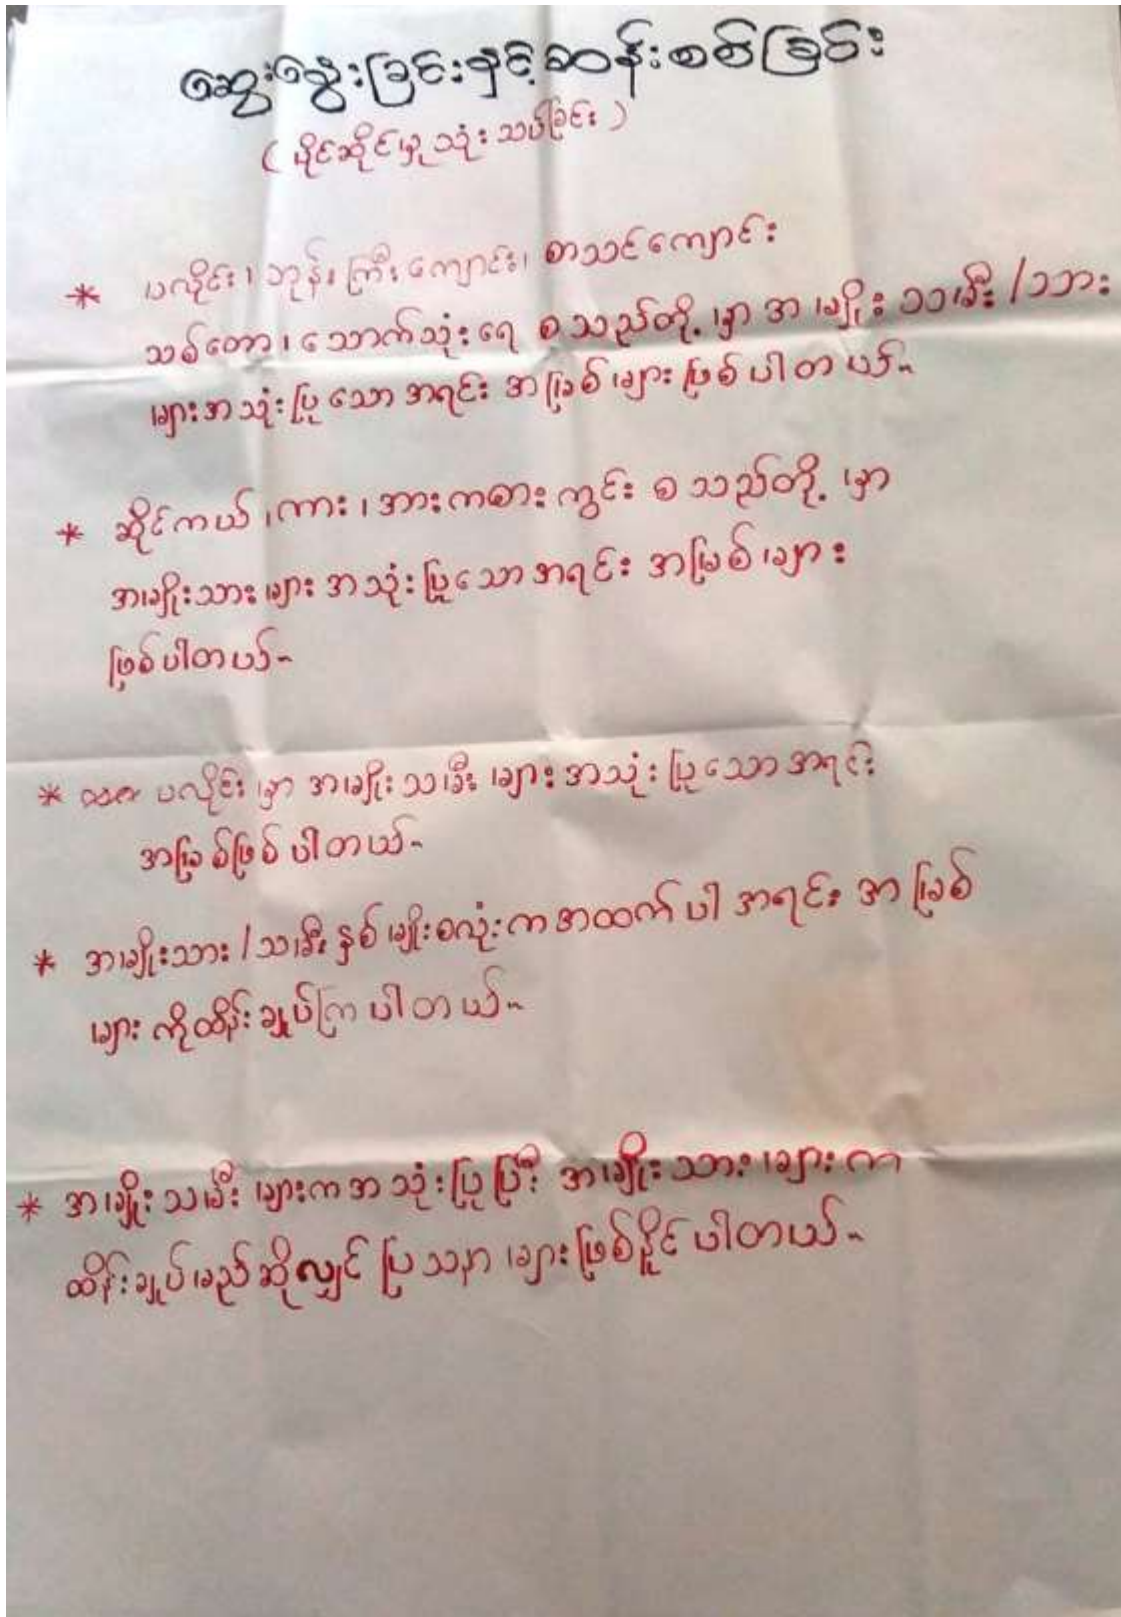 ဆွေးနွေးခြင်းနှင့်ဆန်းစစ်ခြင်း
( ပိုင်ဆိုင်မှု သုံးသပ်ခြင်း )
* ပလိုင်း၊ ဘုန်းကြီးကျောင်း၊ စာသင်ကျောင်း
သစ်တော၊ သောက်သုံးရေ စသည်တို့မှာ အမျိုးသမီး/သား
များအသုံးပြုသော အရင်းအမြစ်များ ဖြစ်ပါတယ်။
* ဆိုင်ကယ်၊ ကား၊ အားကစားကွင်း စသည်တို့မှာ
အမျိုးသားများ အသုံးပြုသောအရင်းအမြစ်များ
ဖြစ်ပါတယ်။
* ပလိုင်းမှာ အမျိုးသမီးများအသုံးပြုသောအရင်း
အမြစ်ဖြစ်ပါတယ်။
* အမျိုးသား/သမီး နှစ်မျိုးစလုံးကအထက်ပါ အရင်းအမြစ်
များကိုထိန်းချုပ်ကြပါတယ်။
* အမျိုးသမီးများကအသုံးပြုပြီး အမျိုးသားများက
ထိန်းချုပ်မည်ဆိုလျှင် ပြသနာများဖြစ်နိုင်ပါတယ်။